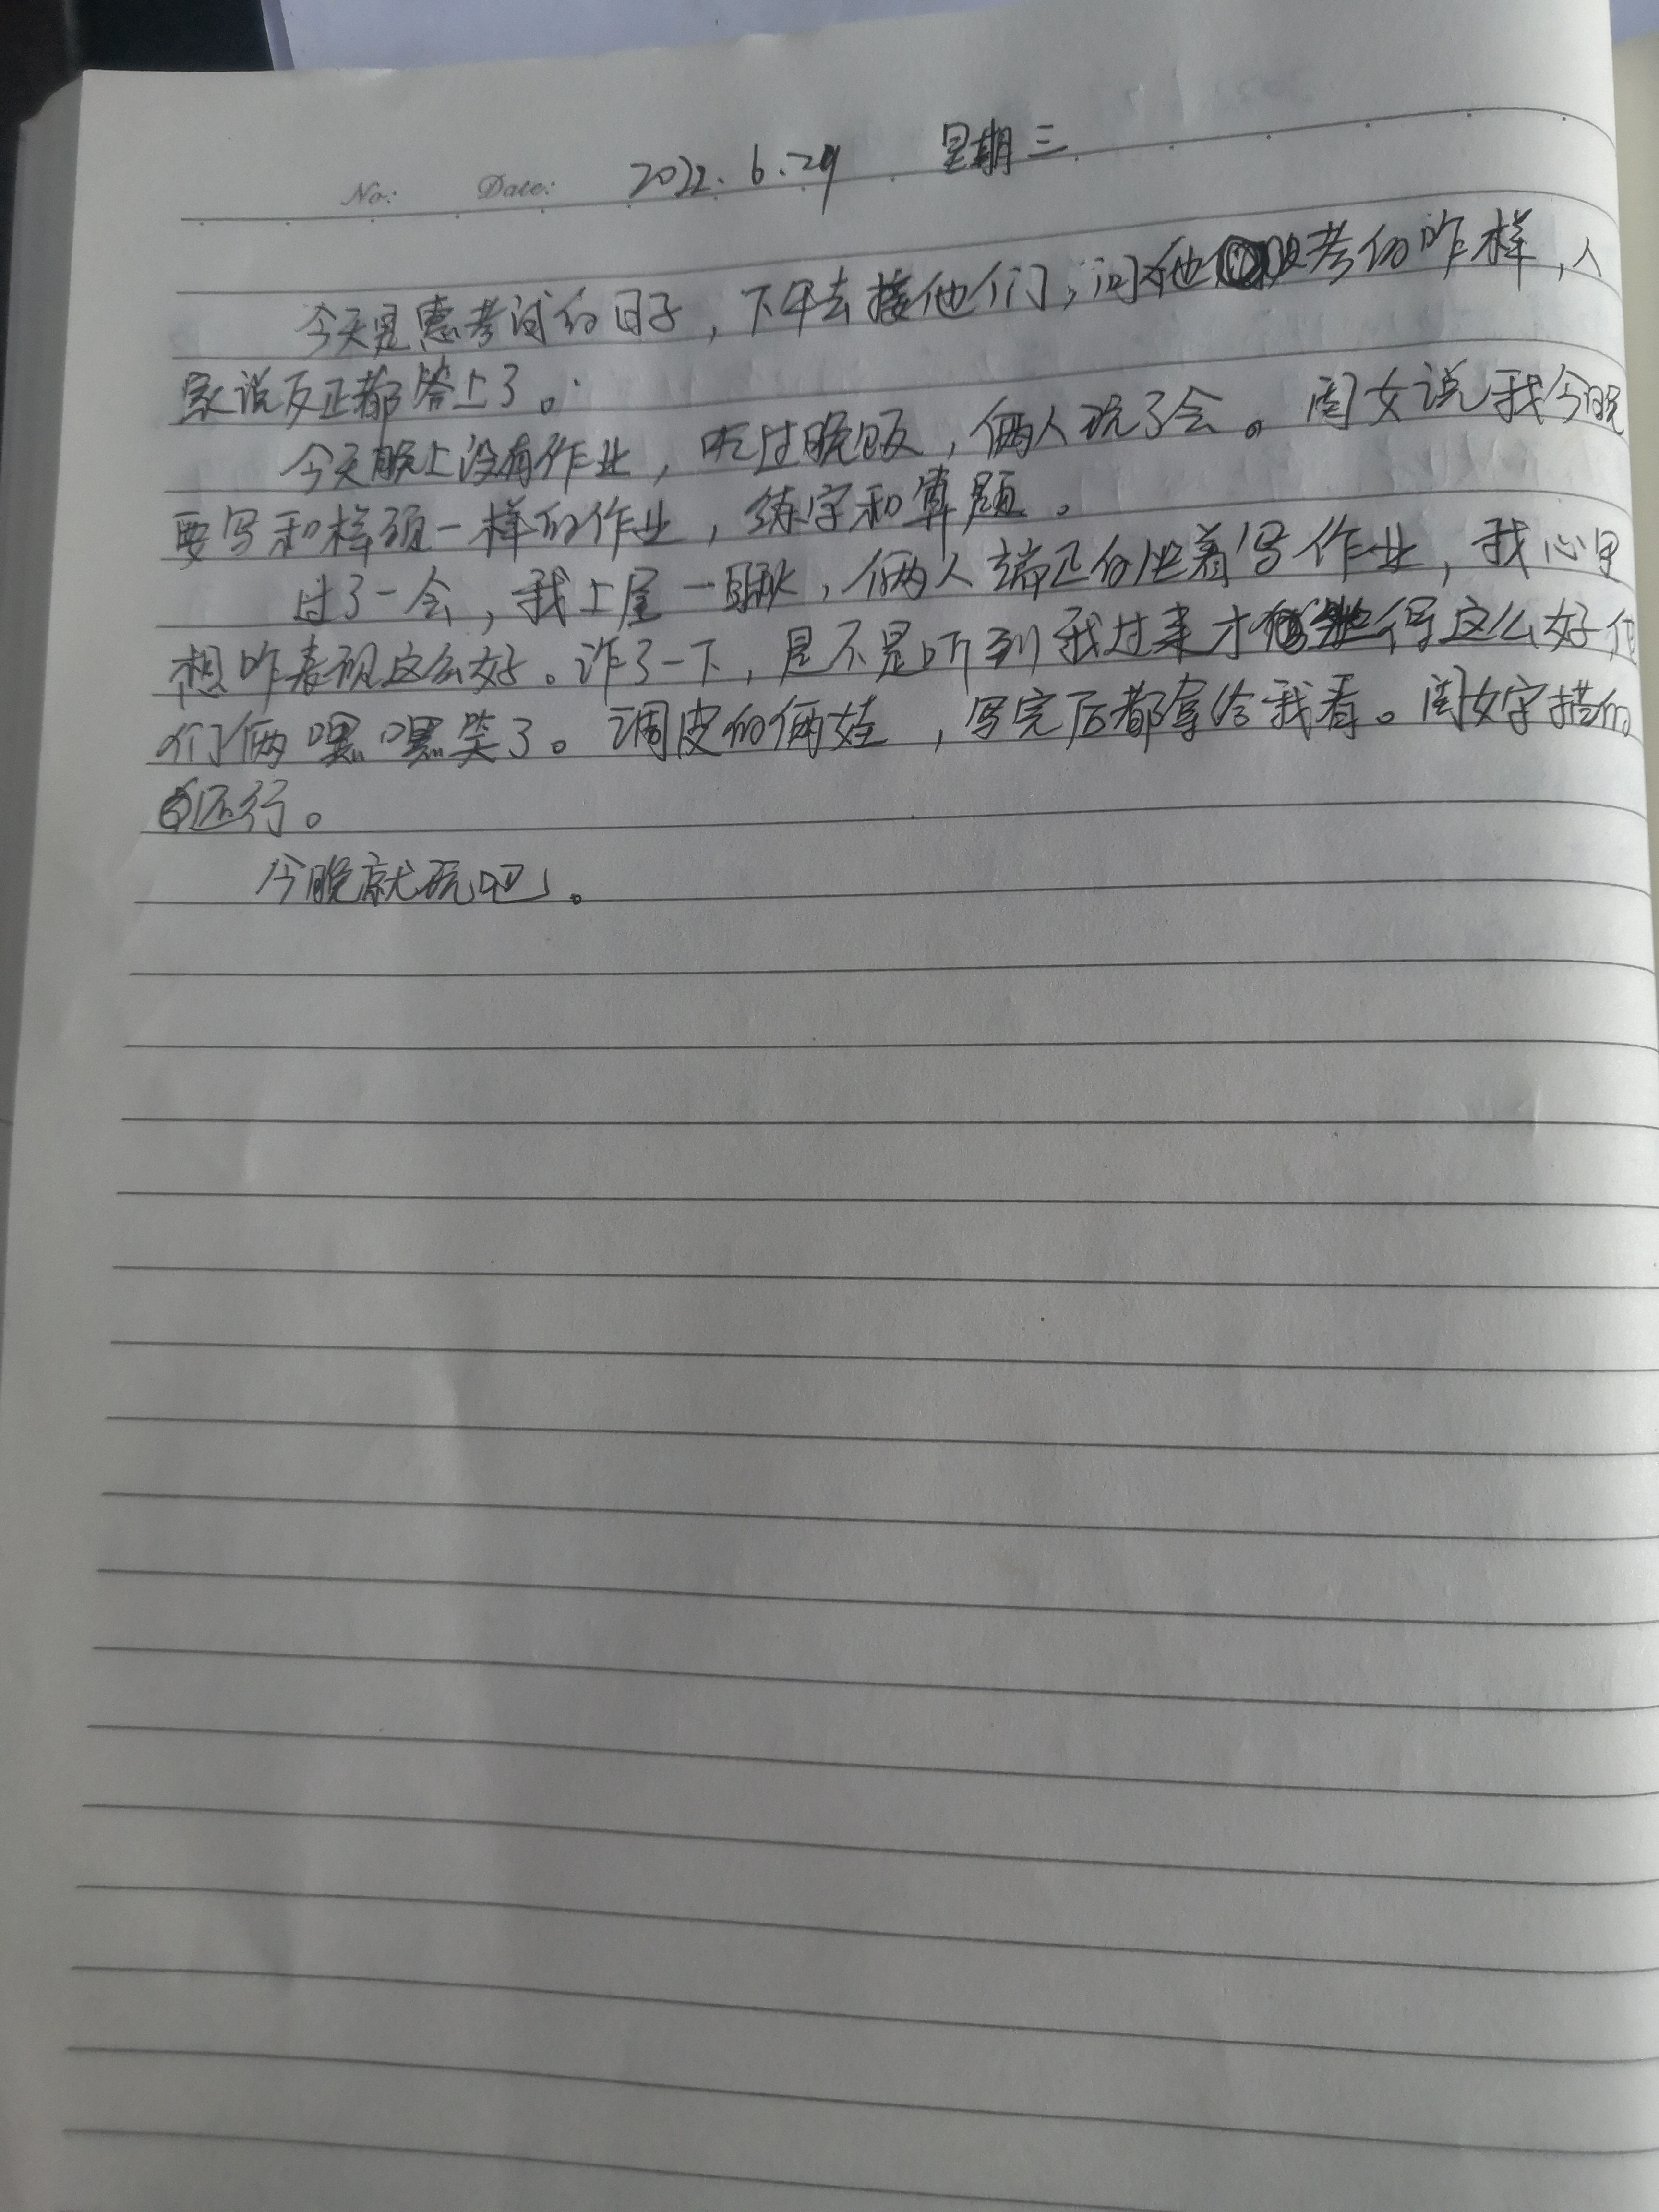 No: Date: 2022.6.29 星期三
今天是惠考试的日子，下午去接他们，问他考的咋样，人
家说反正都答上了。
今天晚上没有作业，吃过晚饭，俩人玩了会。闺女说我今晚
要写和样硕一样的作业，练字和算题。
过了一会，我上屋一瞅，俩人端正的坐着写作业，我心里
想咋表现这么好。诈了一下，是不是听到我过来才得这么好他
们俩嘿嘿笑了。调皮的俩娃，写完后都拿给我看。闺女字描的
还行。
今晚就玩吧。